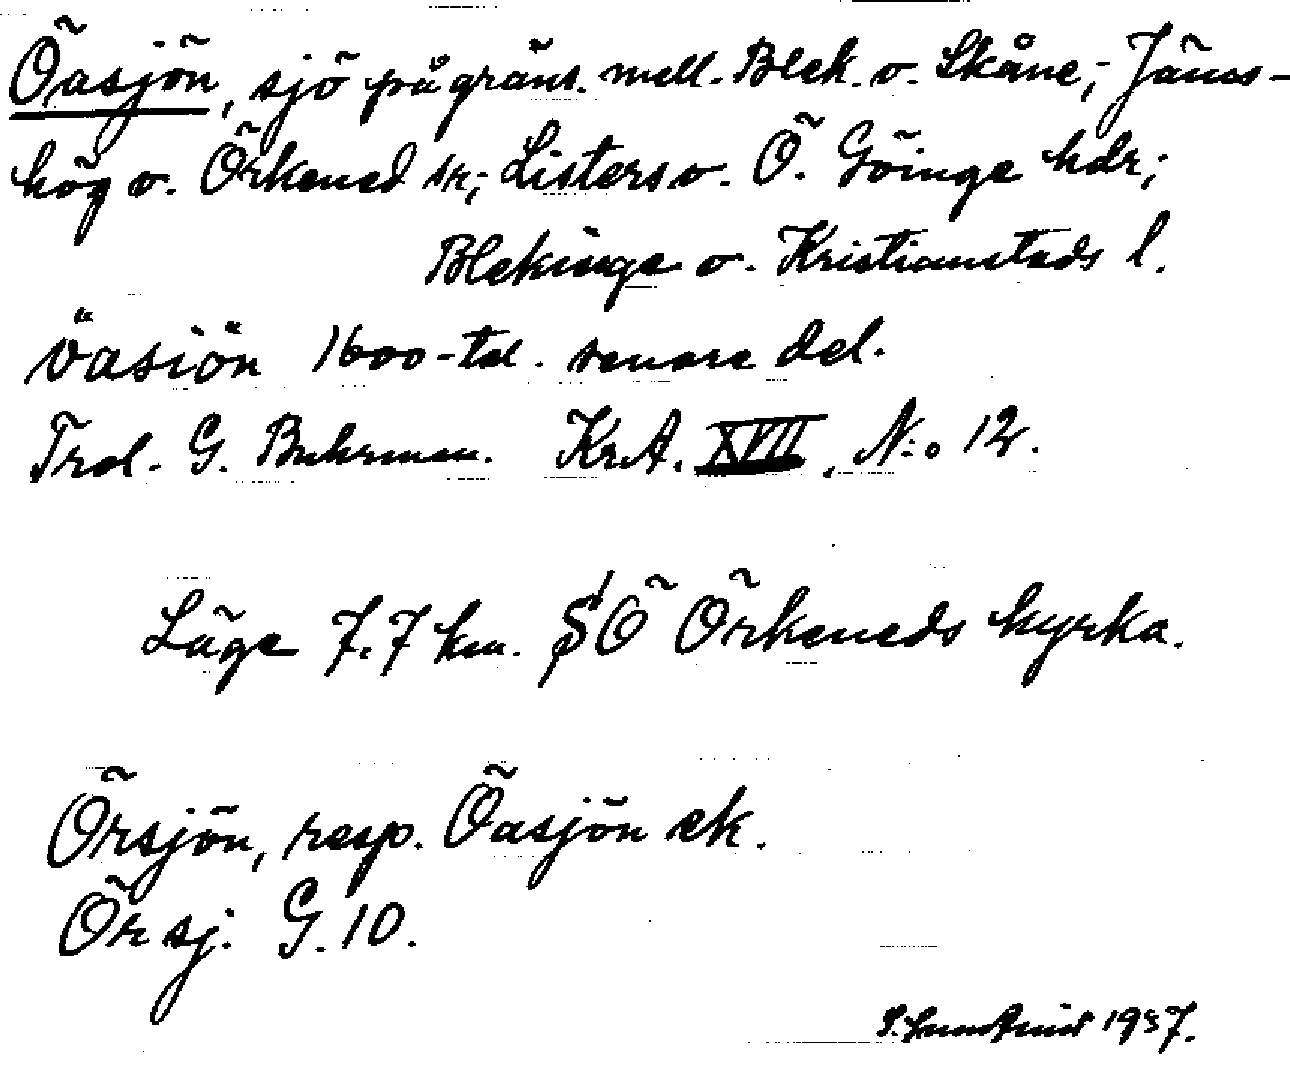 Öasjön, sjö på gräns. mell. Blek. o. Skåne; Jäms-
hög o. Örkened sn; Listers o. Ö. Göinge hdr;
Blekinge o. Kristianstads l.
Öasiön 1600-tal. senare del.
Trol. G. Buhrman. KrA. XVII, N:o 12.
Läge 7.7 km. SÖ Örkeneds kyrka.
Örsjön, resp. Öasjön ek.
Örsj. G. 10.
1937.